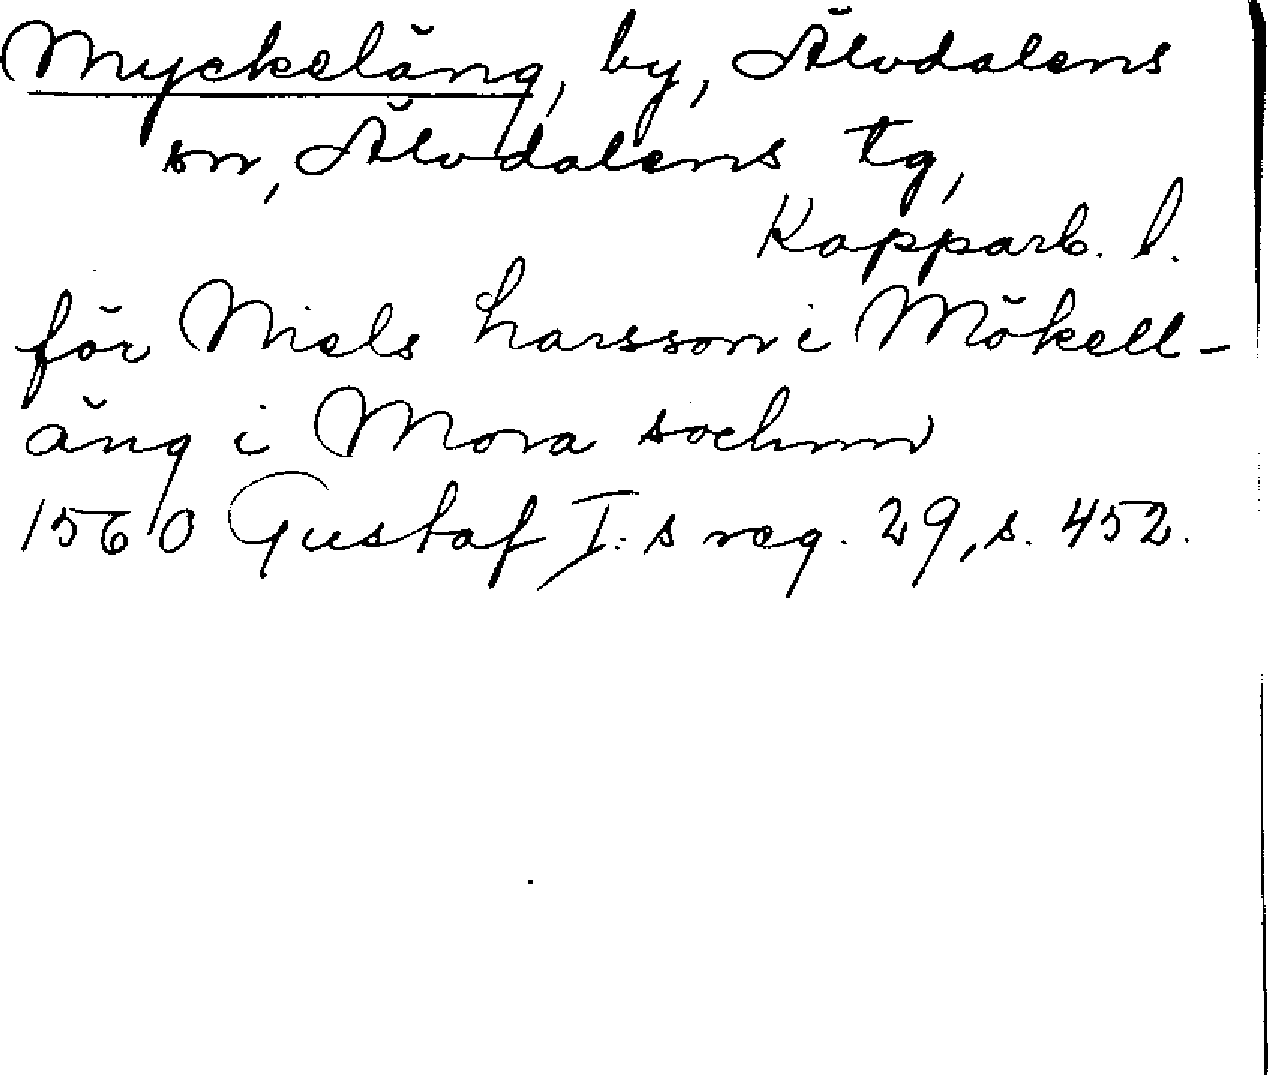 Myckeläng, by, Älvdalens
sn, Älvdalens tg,
Kopparb. l.
för Niels Larsson i Mökell-
äng i Mora sochnn
1560 Gustaf I:s reg. 29, s. 452.